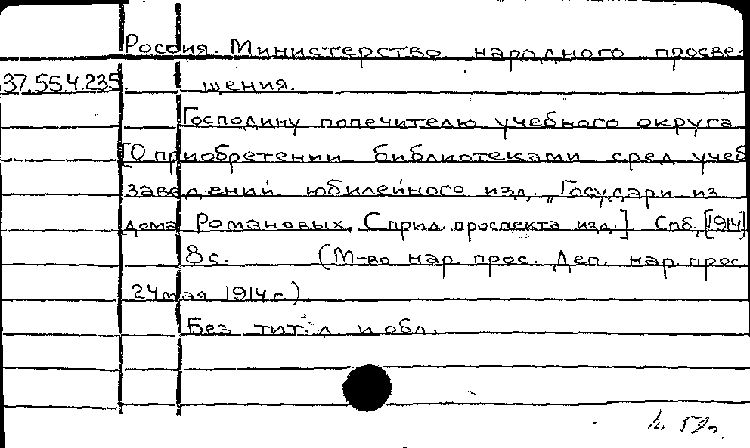 Россия. Министерство народного просве-
37.55.4.235. щения.
Господину попечителю учебного округа
[О приобретении библиотеками сред учеб
заведений юбилейного изд. „Государи из
дома Романовых. С прил. проспекта изд.] Спб, [1914]
8 с. (М-во нар. прос. Деп. нар. прос.
24 мая 1914 г.)
Без титул. и обл.